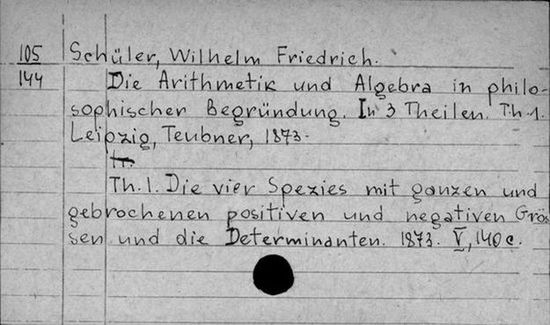 105 Schüler, Wilhelm Friedrich.
144 Die Arithmetik und Algebra in philo-
sophischer Begründung. In 3 Theilen. Th. 1.
Leipzig, Teubner, 1873.
Th. 1. Die vier Spezies mit ganzen und
gebrochenen positiven und negativen Grös-
sen und die Determinanten. 1873. V, 140 c.